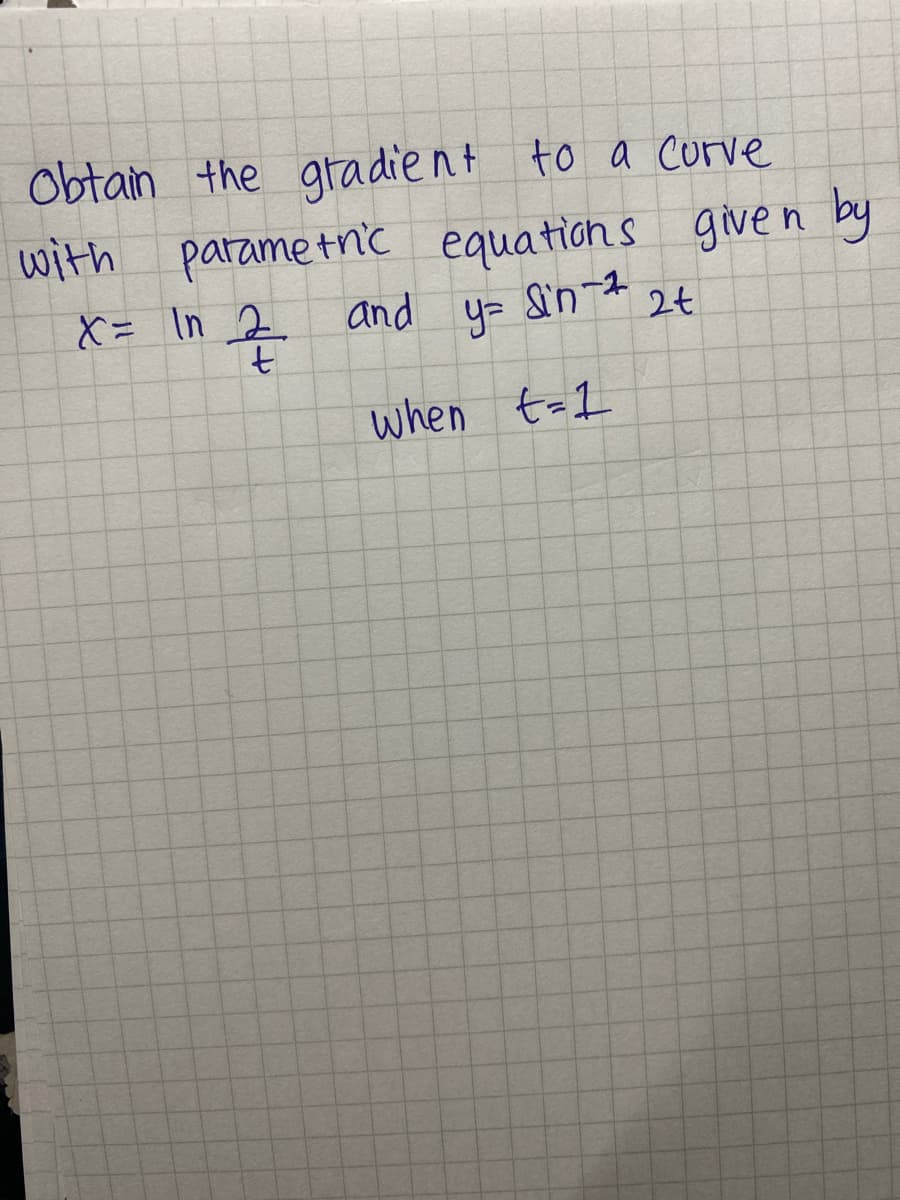 Obtain the gradient to a curve
with parametric equations given by
x = ln 2/t and y = Sin⁻¹ 2t
when t=1